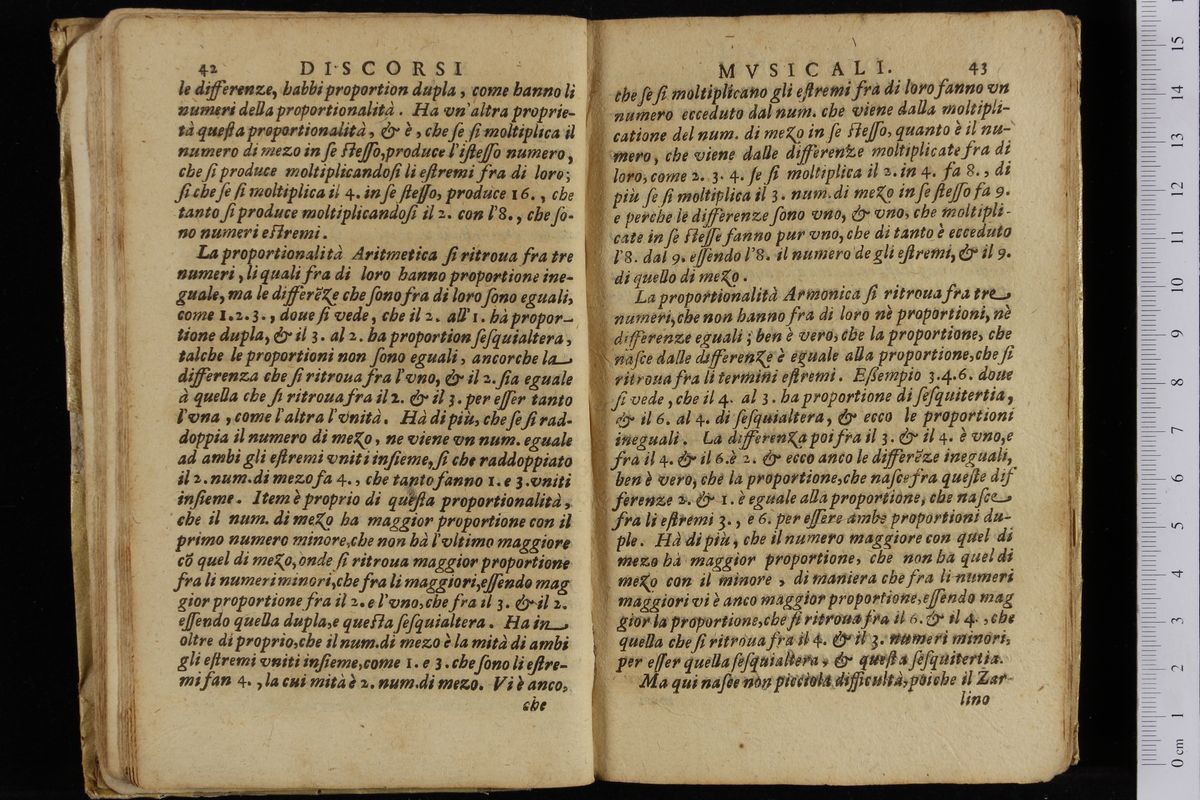 42 DISCORSI
le differenze, habbi proportion dupla, come hanno li
numeri della proportionalità. Ha vn'altra proprie-
tà questa proportionalità, & è, che se si moltiplica il
numero di mezo in se stesso, produce l'istesso numero,
che si produce moltiplicandosi li estremi fra di loro;
si che se si moltiplica il 4. in se stesso, produce 16., che
tanto si produce moltiplicandosi il 2. con l'8., che so-
no numeri estremi.
La proportionalità Aritmetica si ritroua fra tre
numeri, li quali fra di loro hanno proportione ine-
guale, ma le differẽze che sono fra di loro sono eguali,
come 1.2.3., doue si vede, che il 2. all'1. hà propor-
tione dupla, & il 3. al 2. ha proportion sesquialtera,
talche le proportioni non sono eguali, ancorche la
differenza che si ritroua fra l'vno, & il 2. sia eguale
à quella che si ritroua fra il 2. & il 3. per esser tanto
l'vna, come l'altra l'vnità. Hà di più, che se si rad-
doppia il numero di mezo, ne viene vn num. eguale
ad ambi gli estremi vniti insieme, si che raddoppiato
il 2. num. di mezo fa 4., che tanto fanno 1. e 3. vniti
insieme. Item è proprio di questa proportionalità,
che il num. di mezo ha maggior proportione con il
primo numero minore, che non hà l'vltimo maggiore
cõ quel di mezo, onde si ritroua maggior proportione
fra li numeri minori, che fra li maggiori, essendo mag
gior proportione fra il 2. e l'vno, che fra il 3. & il 2.
essendo quella dupla, e questa sesquialtera. Ha in
oltre di proprio, che il num. di mezo è la mità di ambi
gli estremi vniti insieme, come 1. e 3. che sono li estre-
mi fan 4., la cui mità è 2. num. di mezo. Vi è anco,
che
MVSICALI. 43
che se si moltiplicano gli estremi fra di loro fanno vn
numero ecceduto dal num. che viene dalla moltipli-
catione del num. di mezo in se stesso, quanto è il nu-
mero, che viene dalle differenze moltiplicate fra di
loro, come 2. 3. 4. se si moltiplica il 2. in 4. fa 8., di
più se si moltiplica il 3. num. di mezo in se stesso fa 9.
e perche le differenze sono vno, & vno, che moltipli-
cate in se stesse fanno pur vno, che di tanto è ecceduto
l'8. dal 9. essendo l'8. il numero de gli estremi, & il 9.
di quello di mezo.
La proportionalità Armonica si ritroua fra tre
numeri, che non hanno fra di loro nè proportioni, nè
differenze eguali; ben è vero, che la proportione, che
nasce dalle differenze è eguale alla proportione, che si
ritroua fra li termini estremi. Essempio 3.4.6. doue
si vede, che il 4. al 3. ha proportione di sesquitertia,
& il 6. al 4. di sesquialtera, & ecco le proportioni
ineguali. La differenza poi fra il 3. & il 4. è vno, e
fra il 4. & il 6. è 2. & ecco anco le differẽze ineguali,
ben è vero, che la proportione, che nasce fra queste dif
ferenze 2. & 1. è eguale alla proportione, che nasce
fra li estremi 3., e 6. per essere ambe proportioni du-
ple. Hà di più, che il numero maggiore con quel di
mezo hà maggior proportione, che non ha quel di
mezo con il minore, di maniera che fra li numeri
maggiori vi è anco maggior proportione, essendo mag
gior la proportione, che si ritroua fra il 6. & il 4., che
quella che si ritroua fra il 4. & il 3. numeri minori,
per esser quella sesquialtera, & questa sesquitertia.
Ma qui nasce non picciola difficultà, poiche il Zar-
lino
0 cm 1 2 3 4 5 6 7 8 9 10 11 12 13 14 15